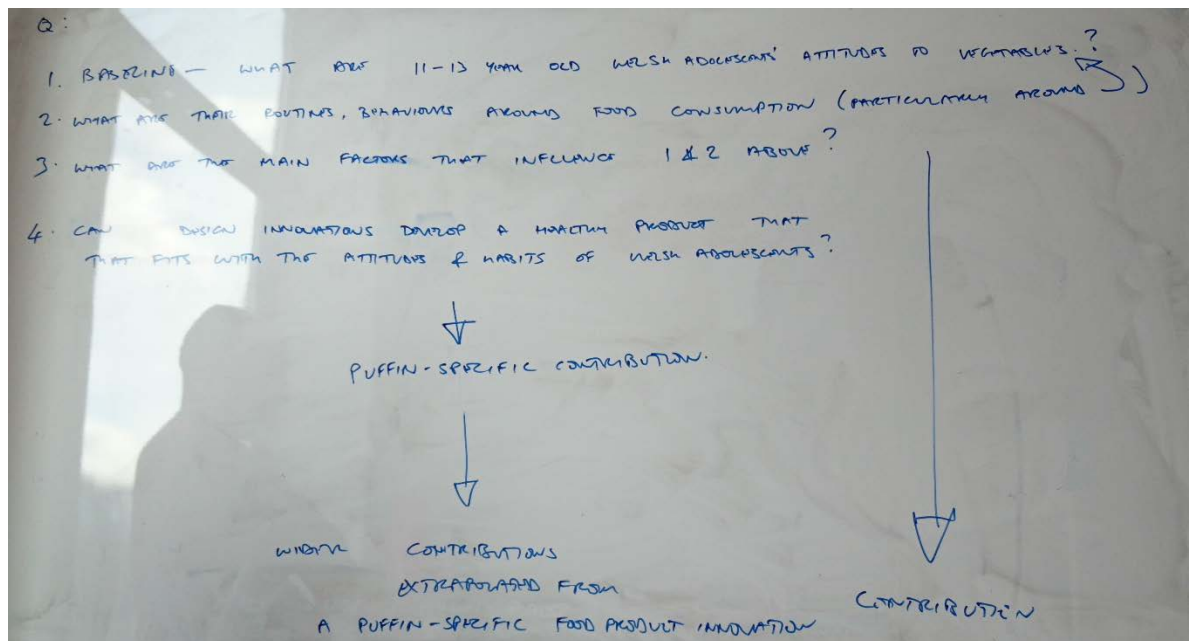 Q:
1. BASELINE — WHAT ARE 11-13 YEAR OLD WELSH ADOLESCENTS' ATTITUDES TO VEGETABLES?
2. WHAT ARE THEIR ROUTINES, BEHAVIOURS AROUND FOOD CONSUMPTION (PARTICULARLY AROUND )
3. WHAT ARE THE MAIN FACTORS THAT INFLUENCE 1 & 2 ABOVE?
4. CAN DESIGN INNOVATIONS DEVELOP A HEALTHY PRODUCT THAT
THAT FITS WITH THE ATTITUDES & HABITS OF WELSH ADOLESCENTS?
PUFFIN-SPECIFIC CONTRIBUTION.
WIDER CONTRIBUTIONS
EXTRAPOLATED FROM
A PUFFIN-SPECIFIC FOOD PRODUCT INNOVATION
CONTRIBUTION